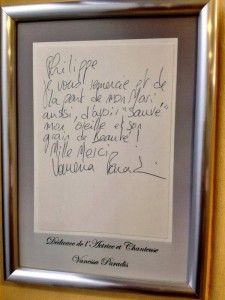 Philippe
Je vous remercie et de
la part de mon Mari
aussi, d'avoir "sauvé"
mon oreille et son
grain de Beauté !
Mille Merci
Vanessa Paradis
Dédicace de l'Actrice et Chanteuse
Vanessa Paradis